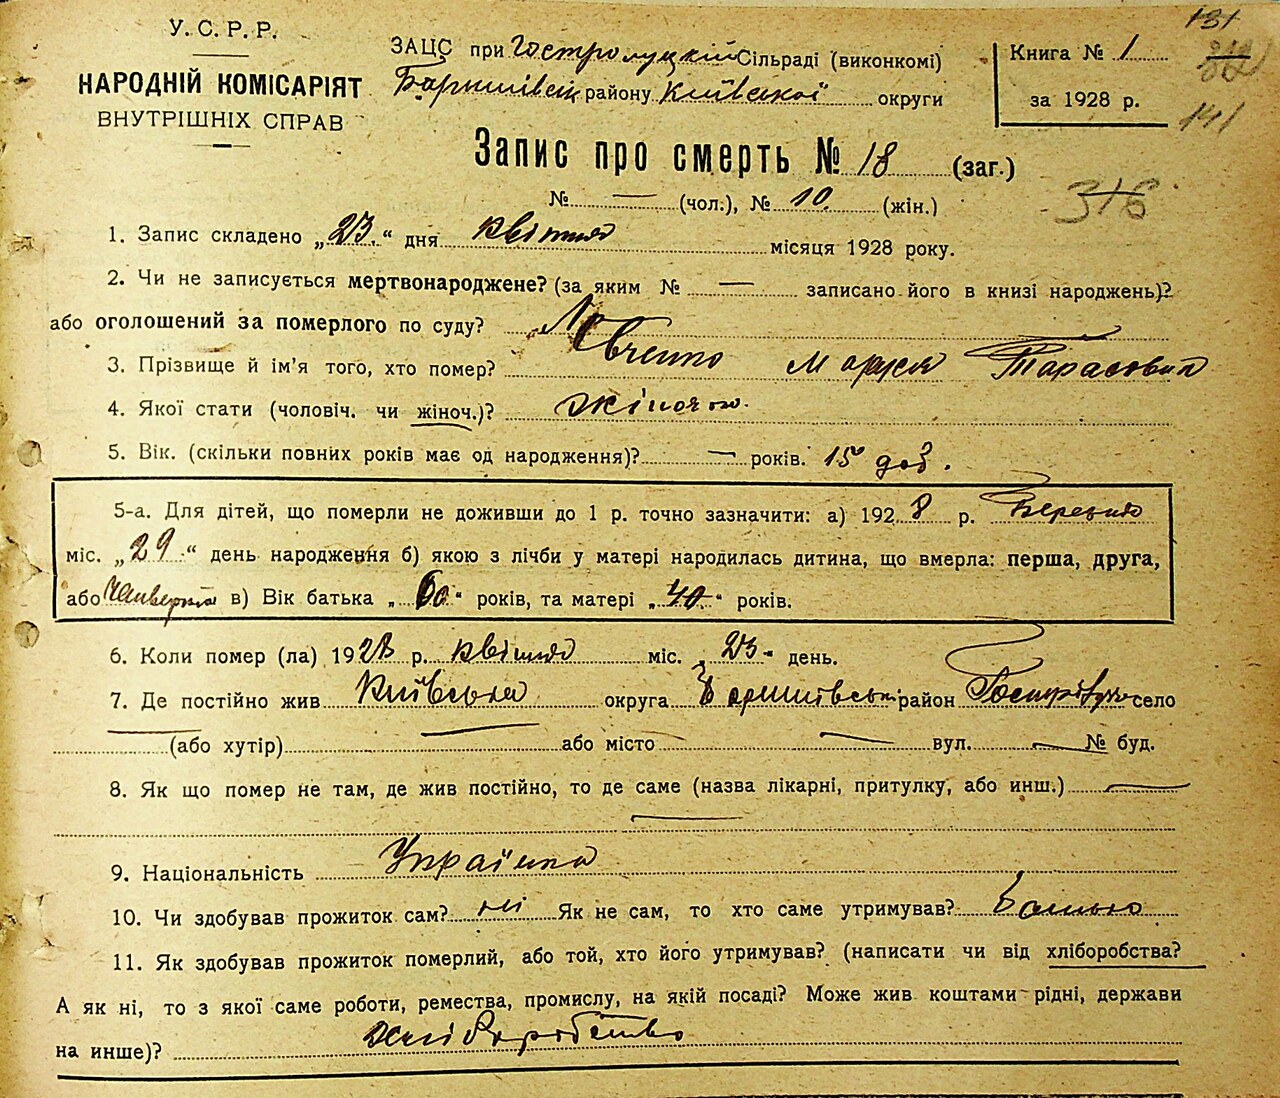 У. С. Р. Р.
НАРОДНІЙ КОМІСАРІЯТ
ВНУТРІШНІХ СПРАВ
ЗАЦС при Гостролуцкій Сільраді (виконкомі)
Баришівськ району Київської округи
Книга № 1
за 1928 р.
131
141
316
Запис про смерть № 18 (заг.)
№ — (чол.), № 10. (жін.)
1. Запис складено „23.“ дня квітня місяця 1928 року.
2. Чи не записується мертвонароджене? (за яким № — записано його в книзі народжень)?
або оголошений за померлого по суду?
3. Прізвище й ім'я того, хто помер? Марія
4. Якої стати (чоловіч. чи жіноч.)? жіночої.
5. Вік. (скільки повних років має од народження)? — років. 15 доб.
5-а. Для дітей, що померли не доживши до 1 р. точно зазначити: а) 1928 р. Березня
міс. „29“ день народження б) якою з лічби у матері народилась дитина, що вмерла: перша, друга,
або четверта в) Вік батька „60“ років, та матері „40“ років.
6. Коли помер (ла) 1928 р. квітня міс. „23“ день.
7. Де постійно жив Київська округа Баришівськ район Гостролуччя село
(або хутір) — або місто — вул. — № буд.
8. Як що помер не там, де жив постійно, то де саме (назва лікарні, притулку, або инш.) —
—
9. Національність Українка
10. Чи здобував прожиток сам? ні Як не сам, то хто саме утримував? Батько
11. Як здобував прожиток померлий, або той, хто його утримував? (написати чи від хліборобства?
А як ні, то з якої саме роботи, ремества, промислу, на якій посаді? Може жив коштами рідні, держави
на инше)? хліборобство